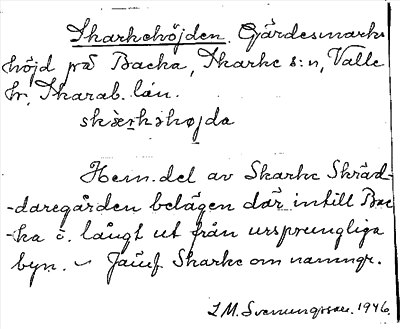 Skarkehöjden. Gärdesmarks
höjd på Backa, Skarke s:n, Valle
hr, Skarab. län.
skærkəhøjda
Hem.del av Skarke Skräd-
-daregården belägen där intill Bac
-ka o. långt ut från ursprungliga
byn. ~ Jämf. Skarke om namngr.
I. M. Svenungsson. 1946.